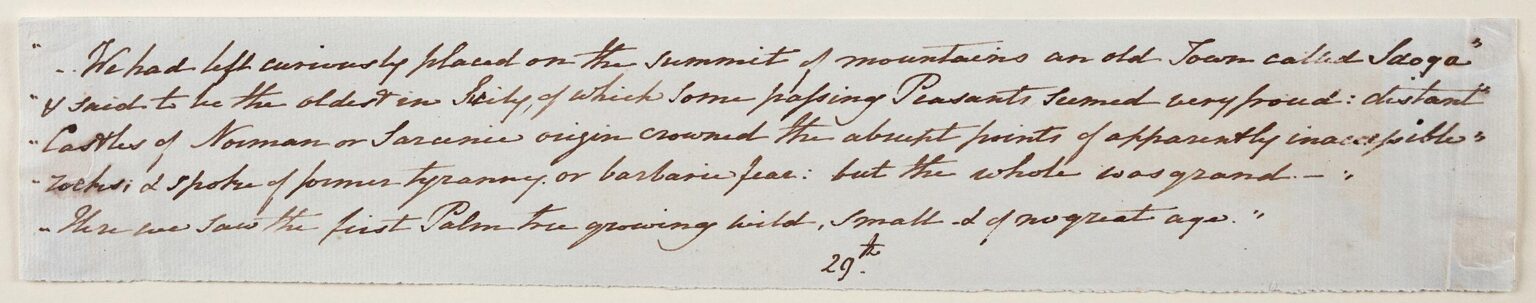 " - We had left curiously placed on the summit of mountains an old Town called Sdoga "
" & said to be the oldest in Sicily, of which some passing Peasants seemed very proud: distant "
" Castles of Norman or Sarcenic origin crowned the abrupt points of apparently inaccessible "
" rocks; & spoke of former tyranny. or barbaric fear: but the whole was grand. — "
" Here we saw the first Palm tree growing wild, small & of no great age. "
29th.